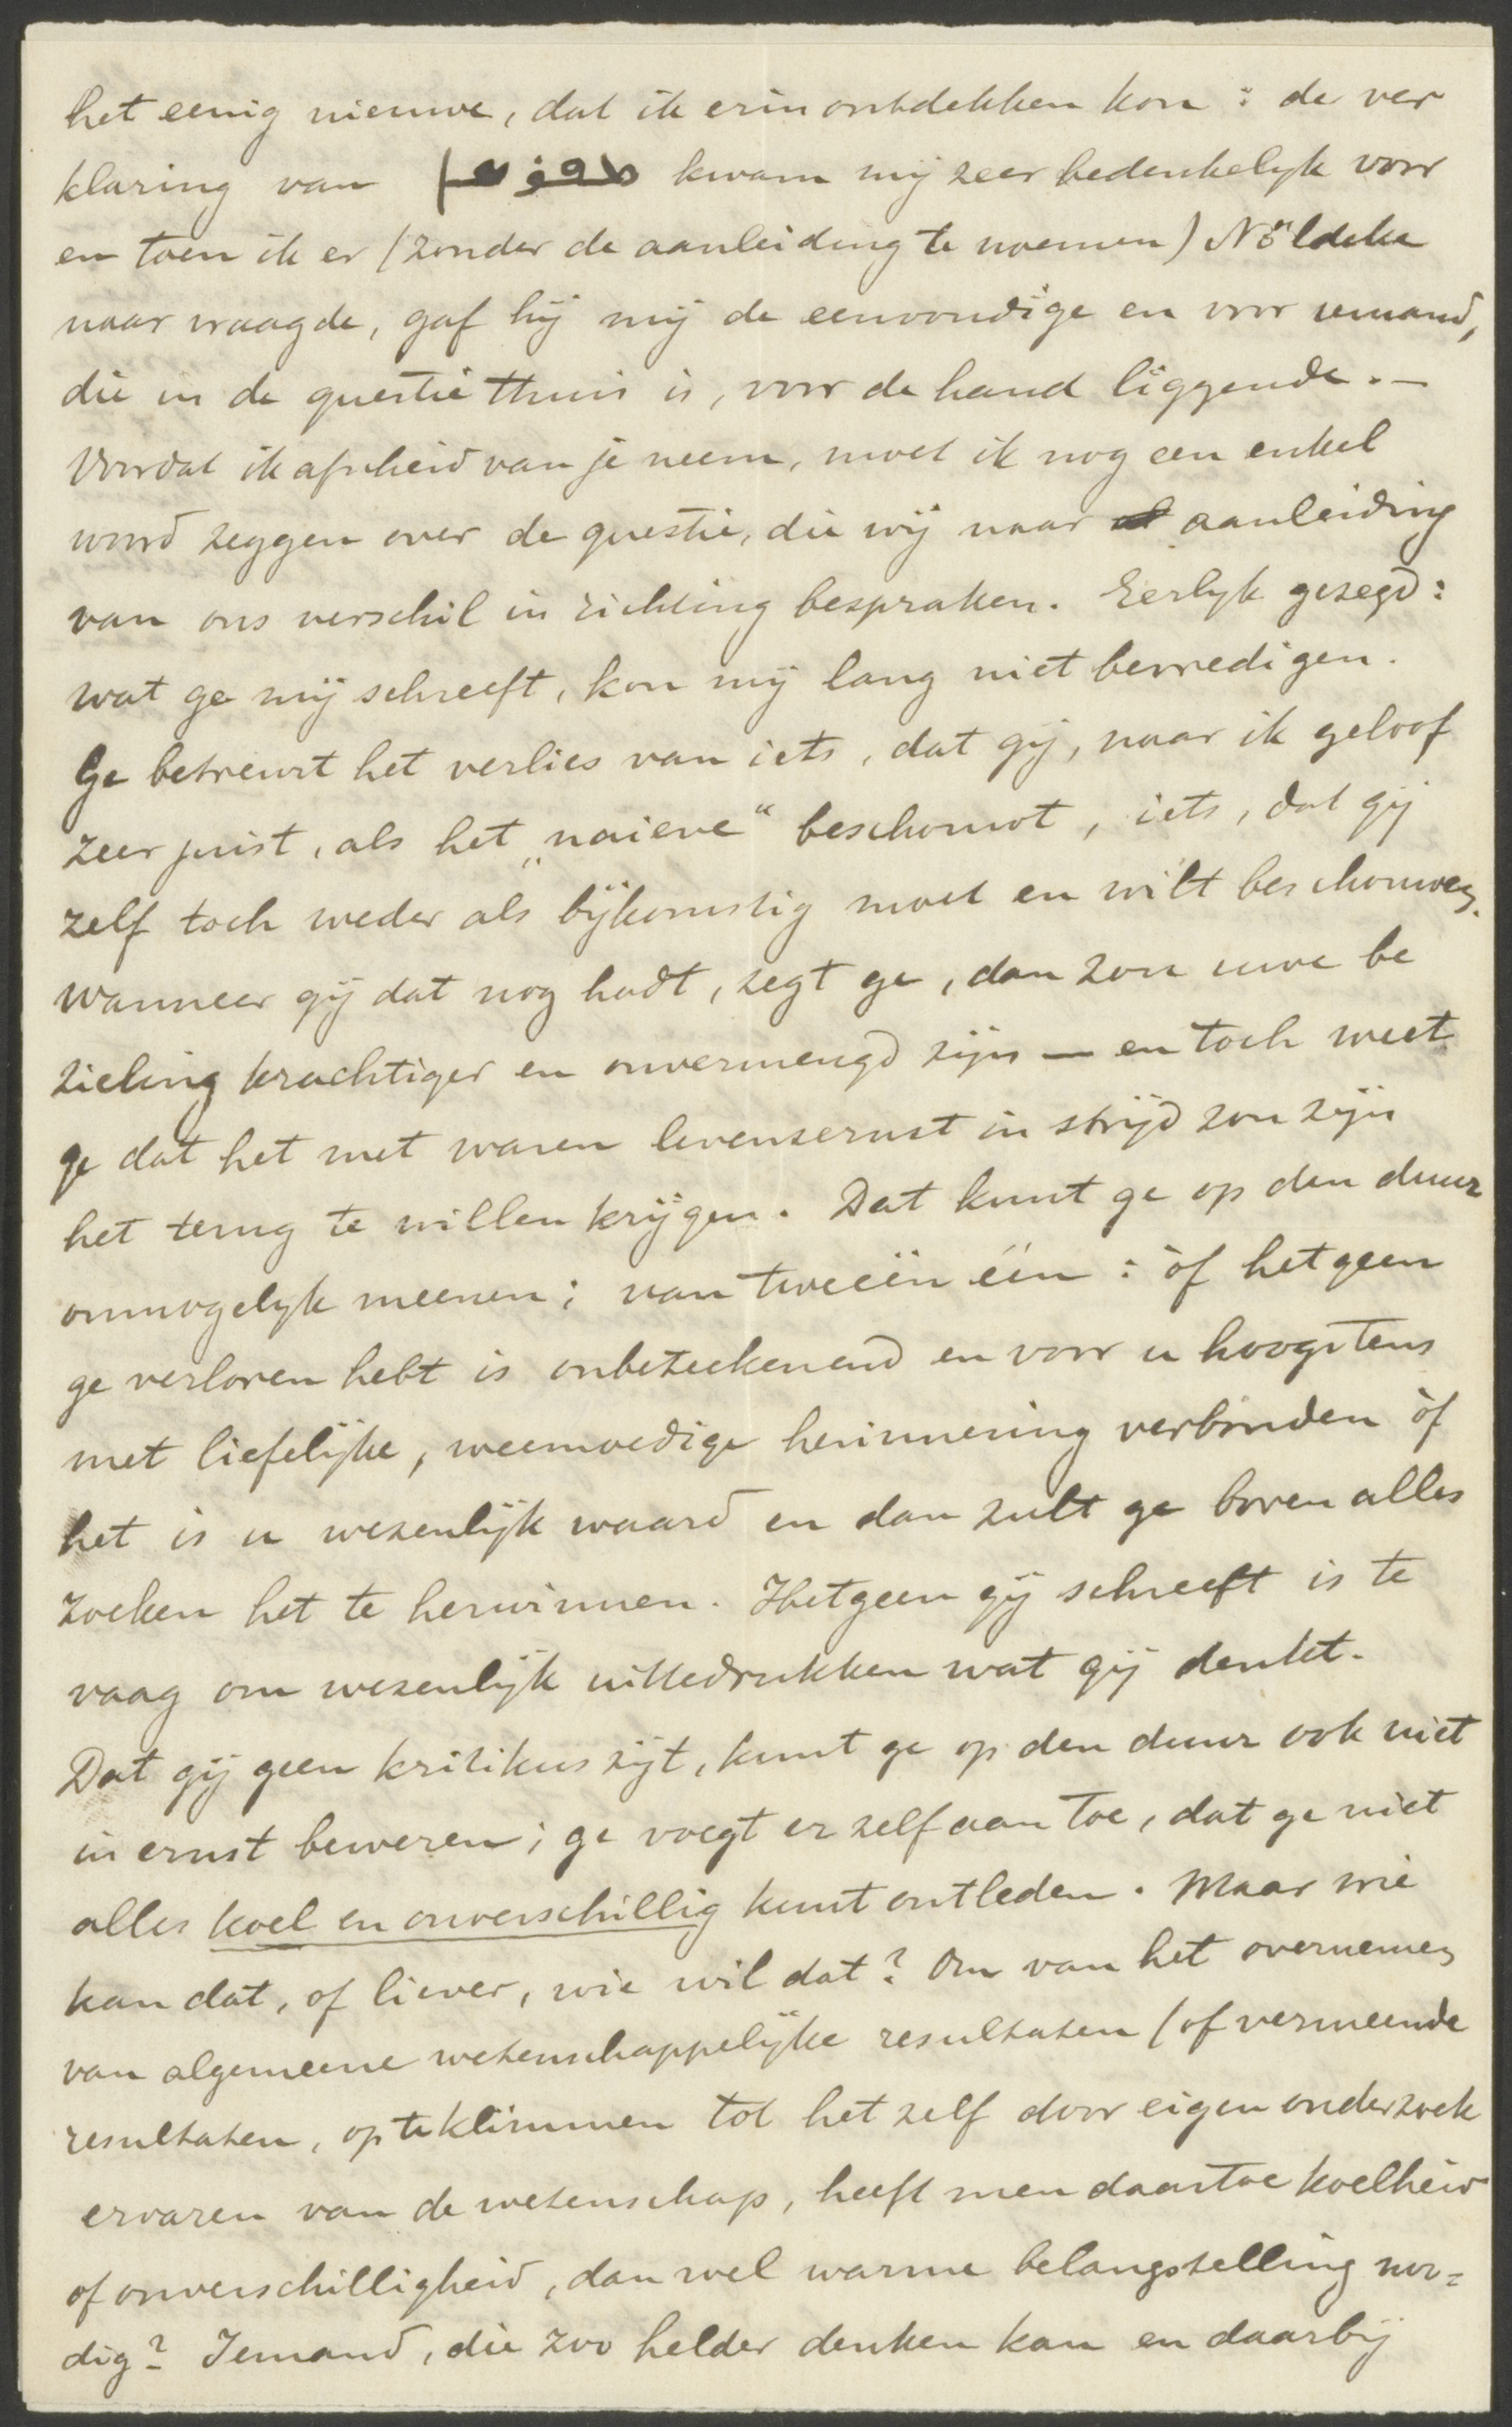 het eenig nieuwe, dat ik erin ontdekken kon: de ver
klaring van kwam mij zeer bedenkelyk voor
en toen ik er (zonder de aanleiding te noemen) Nöldeke
naar vraagde, gaf hij mij de eenvoudige en voor iemand,
die in de questie thuis is, voor de hand liggende. —
Voordat ik afscheid van je neem, moet ik nog een enkel
woord zeggen over de questie, die wij naar aanleiding
van ons verschil in richting bespraken. Eerlyk gezegd:
wat ge mij schreeft, kon mij lang niet bevredigen.
Ge betreurt het verlies van iets, dat gij, naar ik geloof
zeer juist, als het „naieve“ beschouwt, iets, dat gij
zelf toch weder als bijkomstig moet en wilt beschouwen.
Wanneer gij dat nog hadt, zegt ge, dan zou uwe be
zieling krachtiger en onvermengd zijn — en toch weet
ge dat het met waren levensernst in strijd zou zijn
het terug te willen krijgen. Dat kunt ge op den duur
onmogelyk meenen; van tweeën één: òf hetgeen
ge verloren hebt is onbeteekenend en voor u hoogstens
met liefelijke, weemoedige herinnering verbonden òf
het is u wezenlijk waard en dan zult ge boven alles
zoeken het te herwinnen. Hetgeen gij schreeft is te
vaag om wezenlijk uittedrukken wat gij denkt.
Dat gij geen kritikus zijt, kunt ge op den duur ook niet
in ernst beweren; ge voegt er zelf aan toe, dat ge niet
alles koel en onverschillig kunt ontleden. Maar wie
kan dat, of liever, wie wil dat? Om van het overnemen
van algemeene wetenschappelijke resultaten (of vermeende
resultaten, op te klimmen tot het zelf door eigen onderzoek
ervaren van de wetenschap, heeft men daartoe koelheid
of onverschilligheid, dan wel warme belangstelling noo=
dig? Iemand, die zoo helder denken kan en daarbij